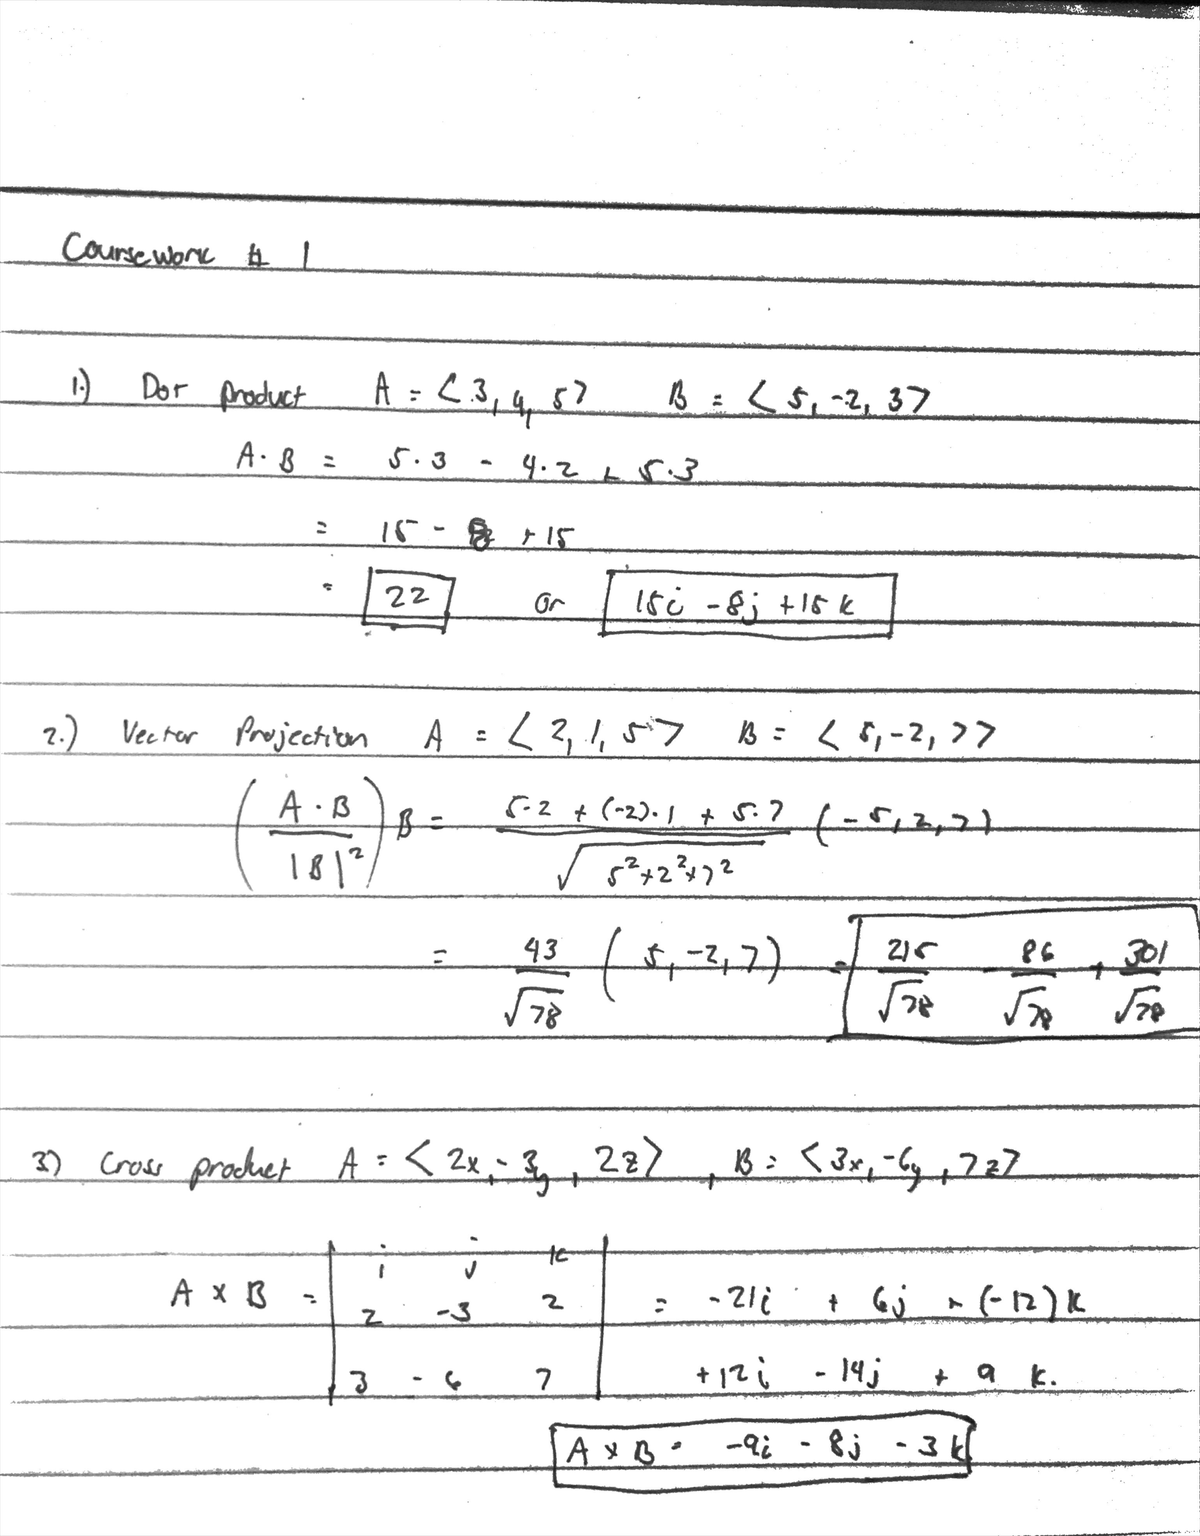 Coursework # 1
1.) Dot product A = < 3, 4, 5> B = < 5, -2, 3>
A · B = 5·3 - 4·2 + 5·3
= 15 - 8 + 15
= 22 or 15i - 8j + 15k
2.) Vector Projection A = < 2, 1, 5> B = < 5, -2, 7>
(A · B / |B|²) B = 5·2 + (-2)·1 + 5·7 / √5²+2²+7² (-5, 2, 7)
= 43/√78 (5, -2, 7) = 215/√78 - 86/√78 + 301/√78
3) Cross product A = < 2x, -3y, 2z> , B = <3x, -6y, 7z>
A × B = | i j k
2 -3 2
3 -6 7 | = -21i + 6j + (-12)k
+12i - 14j + 9 k.
A × B = -9i - 8j - 3k